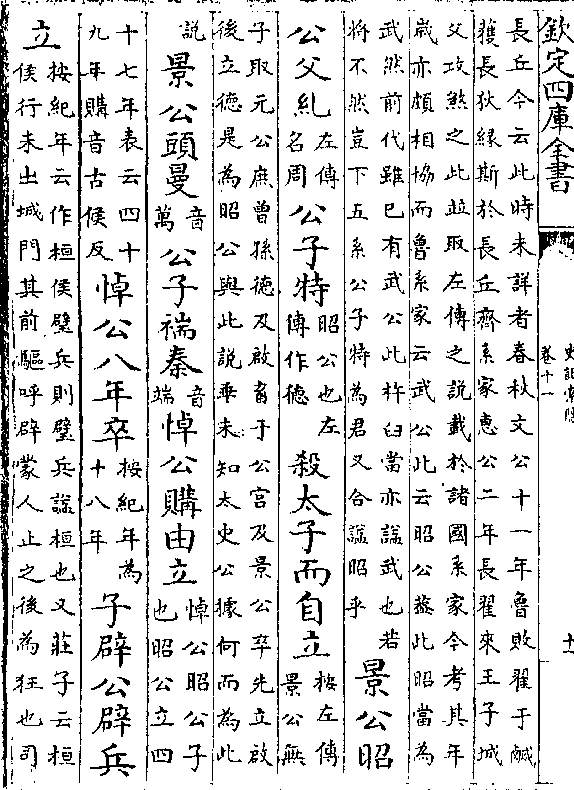 欽定四庫全書
史記索隱
卷十一
十一
長丘今云此時未詳者春秋文公十一年魯敗翟于鹹
獲長狄緣斯於長丘齊系家惠公二年長翟來王子城
父攻煞之此並取左傳之說載於諸國系家今考其年
歲亦頗相協而魯系家云武公此云昭公葢此昭當為
武然前代雖已有武公此杵臼當亦諡武也若
將不然豈下五系公子特為君又合諡昭乎景公昭
公父糺左傳名周公子特昭公也左傳作德殺太子而自立按左傳景公無
子取元公庶曾孫德及啟畜于公宮及景公卒先立啟
後立德是為昭公與此說乖未知太史公據何而為此
說景公頭曼音萬公子褍秦音端悼公購由立悼公昭公子也昭公立四
十七年表云四十九年購音古候反悼公八年卒按紀年為十八年子辟公辟兵
立按紀年云作桓侯璧兵則璧兵諡桓也又莊子云桓
侯行未出城門其前驅呼辟蒙人止之後為狂也司